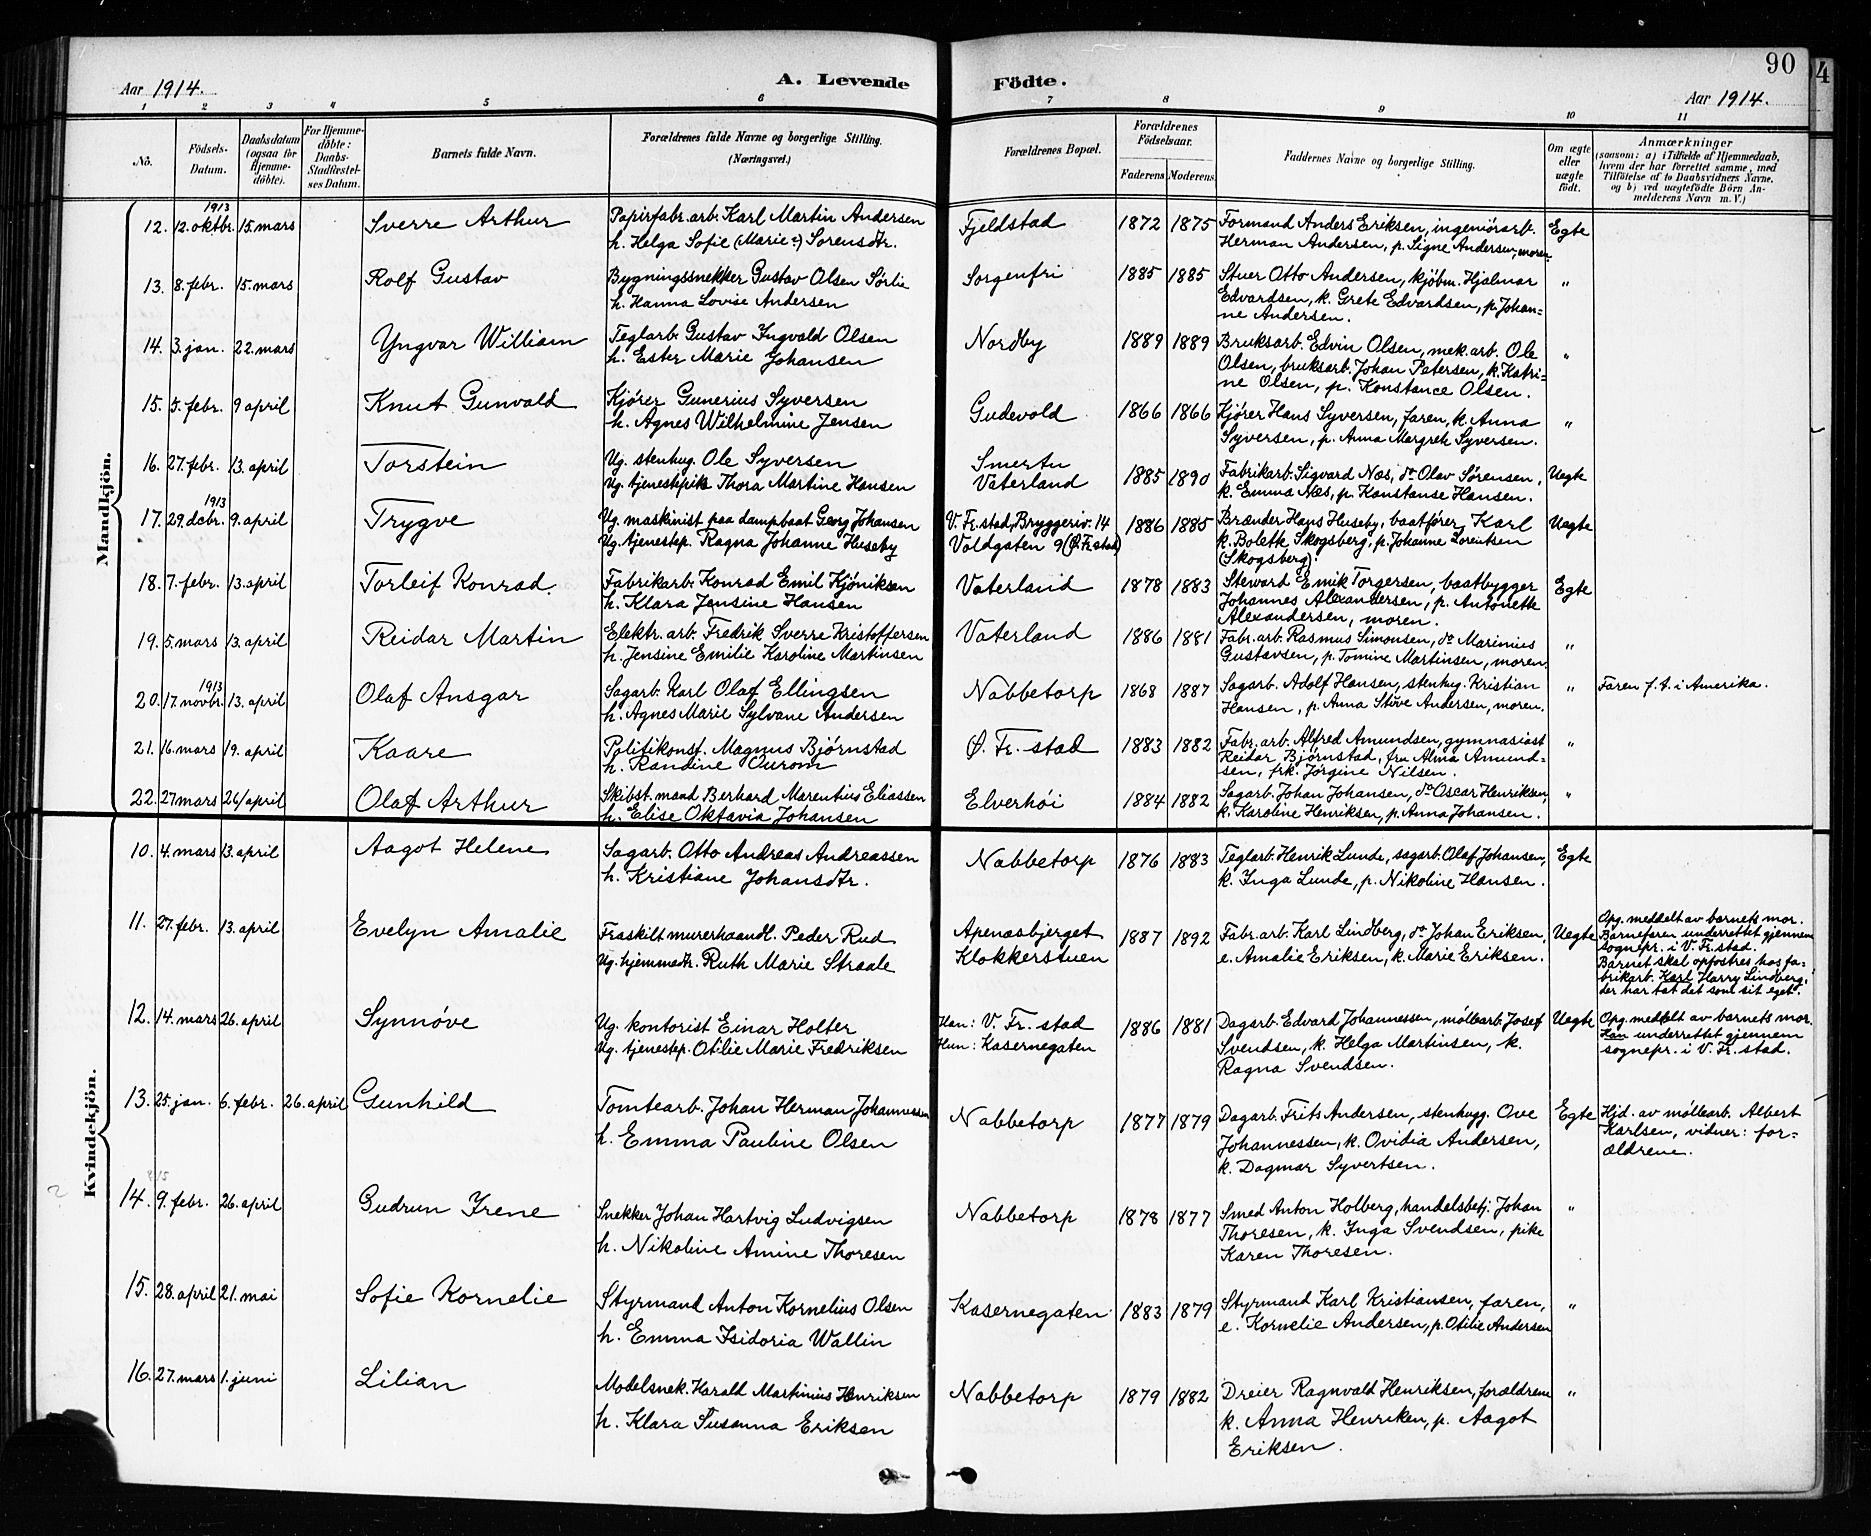 90
Aar 1914.
A. Levende Födte.
Aar 1914.
1 2 3 4 5 6 7 8 9 10 11
No.
Födsels-
Datum.
Daabsdatum
(ogsaa for
Hjemme-
döbte).
For Hjemme-
döbte:
Daabs-
Stadfæstel-
ses Datum.
Barnets fulde Navn.
Forældrenes fulde Navne og borgerlige Stilling.
(Næringsvei.)
Forældrenes Bopæl.
Forældrenes
Födselsaar.
Faderens. Moderens.
Faddernes Navne og borgerlige Stilling.
Om ægte
eller
uægte
födt.
Anmærkninger
(saasom: a) i Tilfælde af Hjemmedaab,
hvem der har forrettet samme, med
Tilföielse af to Daabsvidners Navne,
og b) ved uægtefödte Börn An-
melderens Navn m. V.)
Mandkjön.
1913
12. 12. oktbr. 15. mars Sverre Arthur
Papirfabr. arb. Karl Martin Andersen
h. Helga Sofie (Marie?) Sorensdtr.
Fjeldstad 1872 1875
Formand Anders Eriksen, ingeniørarb.
Herman Andersen, p. Signe Andersen, moren
Egte
13. 8. febr. 15. mars Rolf Gustav
Bygningssnekker Gustav Olsen Sørlie
h. Hanna Lovise Andersen
Sorgenfri 1885 1885
Stuer Otto Andersen, kjøbm. Hjalmar
Edvardsen, k. Grete Edvardsen, p. Johan-
ne Andersen.
"
14. 3. jan. 22. mars Yngvar William
Teglarb. Gustav Ingvald Olsen
h. Ester Marie Johansen
Nordby 1889 1889
Bruksarb. Edvin Olsen, mek. arb. Ole
Olsen, bruksarb. Johan Petersen, k. Katri-
ne Olsen, p. Konstance Olsen.
"
15. 5. febr. 9 april Knut Gunvald
Kjører Gunerius Syversen
h. Agnes Wilhelmine Jensen
Gudevold 1866 1866
Kjører Hans Syversen, faren, k. Anna
Syversen, p. Anna Margrete Syversen.
"
16. 27. febr. 13. april Torstein
Ug. stenhug. Ole Syversen
Ug. tjenestepik Thora Martine Hansen
Vaterland 1885 1890
Fabrikarb. Sigvard Næs, do Olav Sørensen,
k. Emma Næs, p. Konstanse Hansen.
Uegte
1913
17. 29. dcbr. 9. april Trygve
Ug. maskinist paa dampbaat Georg Johansen
Ug. tjenestep. Ragna Johanne Huseby
V. Fr.stad, Bryggeriv. 14
Voldgaten 9 (Ø. Fr.stad)
1886 1885
Brænder Hans Huseby, baatfører Karl
k. Bolette Skogsberg, p. Johanne Lorentsen
(Skogsberg).
Uegte
18. 7. febr. 13. april Torleif Konrad.
Fabrikarb. Konrad Emil Kjøniksen
h. Klara Jensine Hansen
Vaterland 1878 1883
Steward Emik Torgersen, baatbygger
Johannes Alexandersen, p. Antonette
Alexandersen, moren.
Egte
19. 5. mars 13. april Reidar Martin
Elektr. arb. Fredrik Sverre Kristoffersen
h. Jensine Emilie Karoline Martinsen
Vaterland 1886 1881
Fabr. arb. Rasmus Simonsen, do Marinius
Gustavsen, p. Tomine Martinsen, moren.
"
1913
20. 17. novbr. 13. april Olaf Ansgar
Sagarb. Karl Olaf Ellingsen
h. Agnes Marie Sylvane Andersen
Nabbetorp 1868 1887
Sagarb. Adolf Hansen, stenhug. Kristian
Hansen, p. Anna Andersen, moren.
"
Faren f. t. i Amerika.
21. 16. mars 19. april Kaare
Politikonst. Magnus Bjørnstad
h. Randine Ourom
Ø. Fr. stad 1883 1882
Fabr. arb. Alfred Amundsen, gymnasiast
Reidar Bjørnstad, fru Alma Amund-
sen, frk. Jørgine Nilsen.
"
22. 27 mars 26/april Olaf Arthur
Skibst.mand Berhard Marentius Eliassen
h. Elise Oktavia Johansen
Elverhöi 1884 1882
Sagarb. Johan Johansen, do Oscar Henriksen,
k. Karoline Henriksen, p. Anna Johansen.
"
Kvindekjön.
10. 4. mars 13. april Aagot Helene
Sagarb. Otto Andreas Andreassen
h. Kristiane Johansdtr.
Nabbetorp 1876 1883
Teglarb. Henrik Lunde, sagarb. Olaf Johansen,
k. Inga Lunde, p. Nikoline Hansen.
Egte
11. 27. febr. 13. april Evelyn Amalie
Fraskilt murerhaandl. Peder Rud
Ug. hjemmedtr. Ruth Marie Straale
Apenæsbjerget
Klokkerstuen
1887 1892
Fabr. arb. Karl Lindberg, do Johan Eriksen,
e. Amalie Eriksen, k. Marie Eriksen.
Uegte
Opg. meddelt av barnets mor.
Barnefaren underrettet gjennem
sognepr. i V. Fr. stad.
Barnet skal opfostres hos fa-
brikarb. Karl Harry Lindberg,
der har tat det som sit eget.
12. 14. mars 26. april Synnøve
Ug. kontorist Einar Holter
Ug. tjenestep. Otilie Marie Fredriksen
Han: V. Fr. stad
Hun: Kasernegaten
1886 1881
Dagarb. Edvard Johannessen, møllearb. Josef
Svendsen, k. Helga Martinsen, k.
Ragna Svendsen.
Uegte
Opg. meddelt av barnets mor.
Han underrettet gjennem
sognepr. i V. Fr. stad.
13. 25. jan. 6. febr. 26. april Gunhild
Tomtearb. Johan Herman Johannessen
h. Emma Pauline Olsen
Nabbetorp 1877 1879
Dagarb. Frits Andersen, stenhugg. Ove
Johannessen, k. Ovidia Andersen,
k. Dagmar Syvertsen.
Egte
Hjd. av møllearb. Albert
Karlsen, vidner: for-
ældrene.
14. 9. febr. 26. april Gudrun Irene
Snekker Johan Hartvig Ludvigsen
h. Nikoline Amine Thoresen
Nabbetorp 1878 1877
Smed Anton Holberg, handelsbetj. Johan
Thoresen, k. Inga Svendsen, pike
Karen Thoresen.
"
15. 28. april 21. mai Sofie Kornelie
Styrmand Anton Kornelius Olsen
h. Emma Isidoria Wallin
Kasernegaten 1883 1879
Styrmand Karl Kristiansen, faren,
e. Kornelie Andersen, p. Otilie Andersen
"
16. 27. mars 1. juni Lilian
Modelsnek. Harald Martinius Henriksen
h. Klara Susanna Eriksen
Nabbetorp 1879 1882
Dreier Ragnvald Henriksen, forældrene
k. Anna Henriken, p. Aagot
Eriksen.
"